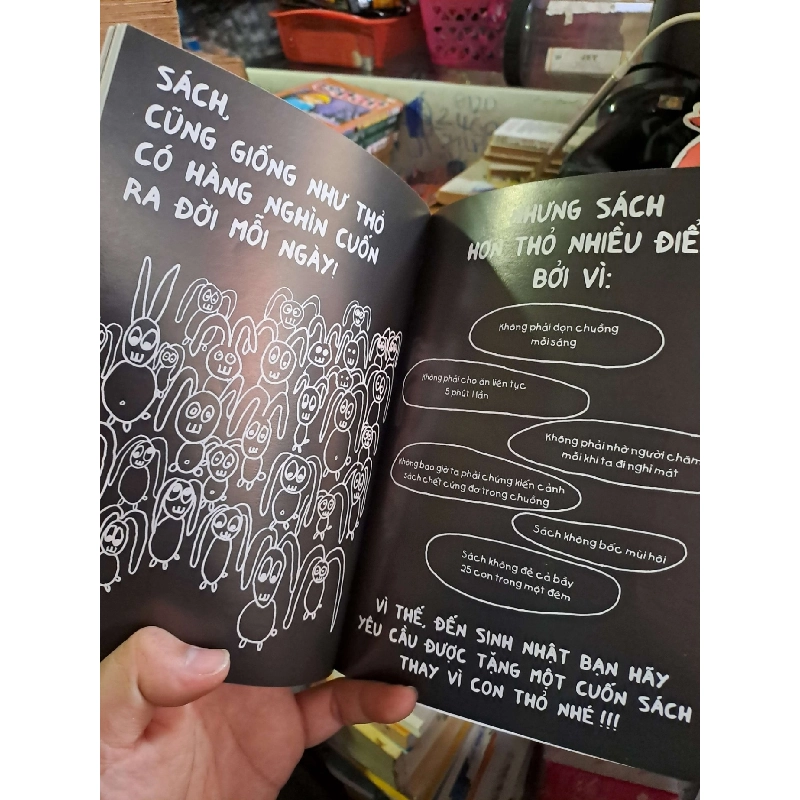 SÁCH,
CŨNG GIỐNG NHƯ THỎ
CÓ HÀNG NGHÌN CUỐN
RA ĐỜI MỖI NGÀY!
NHƯNG SÁCH
HƠN THỎ NHIỀU ĐIỂ
BỞI VÌ:
Không phải dọn chuồng
mỗi sáng
Không phải cho ăn liên tục
5 phút 1 lần
Không phải nhờ người chăm
mỗi khi ta đi nghỉ mát
Không bao giờ ta phải chứng kiến cảnh
sách chết cứng đơ trong chuồng
Sách không bốc mùi hôi
Sách không đẻ cả bầy
25 con trong một đêm
VÌ THẾ, ĐẾN SINH NHẬT BẠN HÃY
YÊU CẦU ĐƯỢC TẶNG MỘT CUỐN SÁCH
THAY VÌ CON THỎ NHÉ!!!